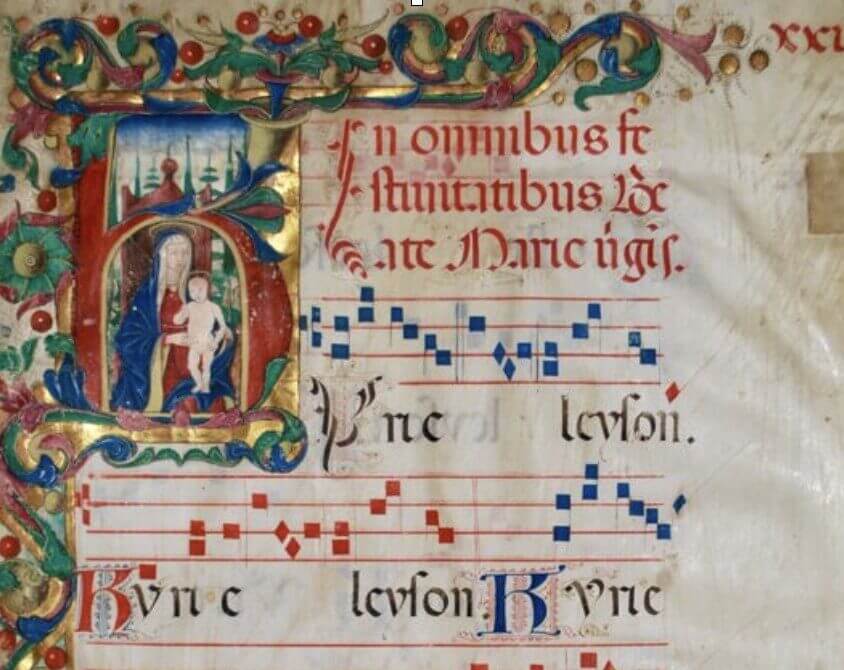 In omnibus fe
stiuitatibus
ate Marie ũgiſ.
Kyrie leyſon.
Kyrie leyſon. Kyrie